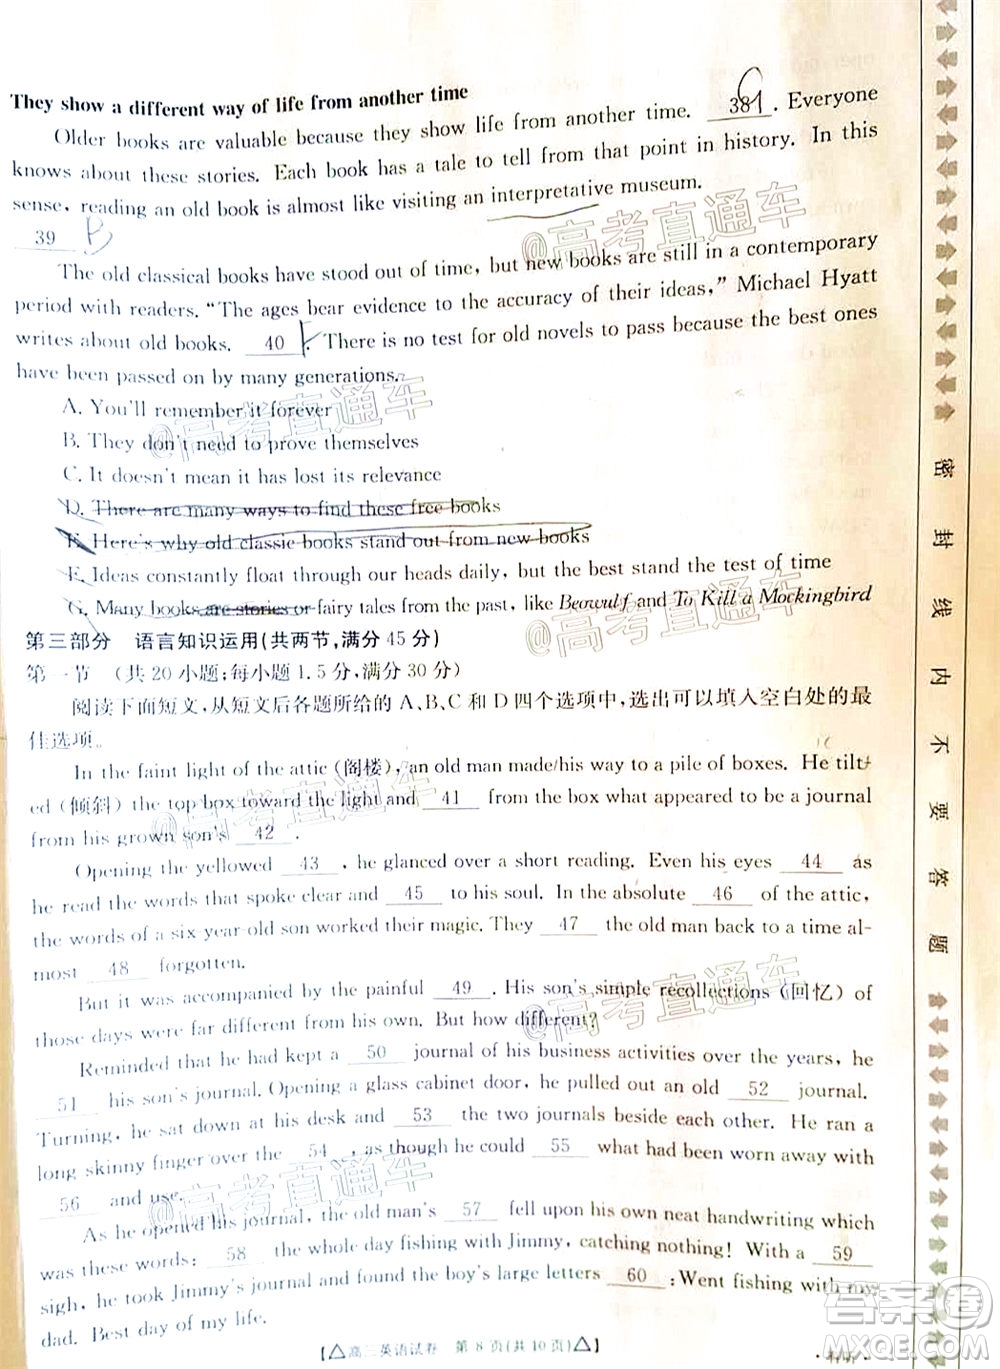 They show a different way of life from another time
Older books are valuable because they show life from another time. 38 . Everyone
knows about these stories. Each book has a tale to tell from that point in history. In this
sense, reading an old book is almost like visiting an interpretative museum.
39 B
The old classical books have stood out of time, but new books are still in a contemporary
period with readers. “The ages bear evidence to the accuracy of their ideas,” Michael Hyatt
writes about old books. 40 . There is no test for old novels to pass because the best ones
have been passed on by many generations.
A. You'll remember it forever
B. They don't need to prove themselves
C. It doesn't mean it has lost its relevance
D. There are many ways to find these free books
E. Here's why old classic books stand out from new books
F. Ideas constantly float through our heads daily, but the best stand the test of time
G. Many books are stories or fairy tales from the past, like Beowulf and To Kill a Mockingbird
第三部分 语言知识运用(共两节,满分 45 分)
第一节 (共 20 小题;每小题 1.5 分,满分 30 分)
阅读下面短文,从短文后各题所给的 A、B、C 和 D 四个选项中,选出可以填入空白处的最
佳选项。
In the faint light of the attic (阁楼), an old man made his way to a pile of boxes. He tilt-
ed (倾斜) the top box toward the light and 41 from the box what appeared to be a journal
from his grown son's 42 .
Opening the yellowed 43 , he glanced over a short reading. Even his eyes 44 as
he read the words that spoke clear and 45 to his soul. In the absolute 46 of the attic,
the words of a six-year-old son worked their magic. They 47 the old man back to a time al-
most 48 forgotten.
But it was accompanied by the painful 49 . His son's simple recollections (回忆) of
those days were far different from his own. But how different?
Reminded that he had kept a 50 journal of his business activities over the years, he
51 his son's journal. Opening a glass cabinet door, he pulled out an old 52 journal.
Turning, he sat down at his desk and 53 the two journals beside each other. He ran a
long skinny finger over the 54 , as though he could 55 what had been worn away with
56 and use.
As he opened his journal, the old man's 57 fell upon his own neat handwriting which
was these words: 58 the whole day fishing with Jimmy, catching nothing! With a 59
sigh, he took Jimmy's journal and found the boy's large letters 60 : Went fishing with my
dad. Best day of my life.
【△高三英语试卷 第 8 页(共 10 页)△】
密封线内不要答题
@高考直通车
@高考直通车
@高考直通车
@高考直通车
@高考直通车
@高考直通车
@高考直通车
答案圈
MXQE.COM